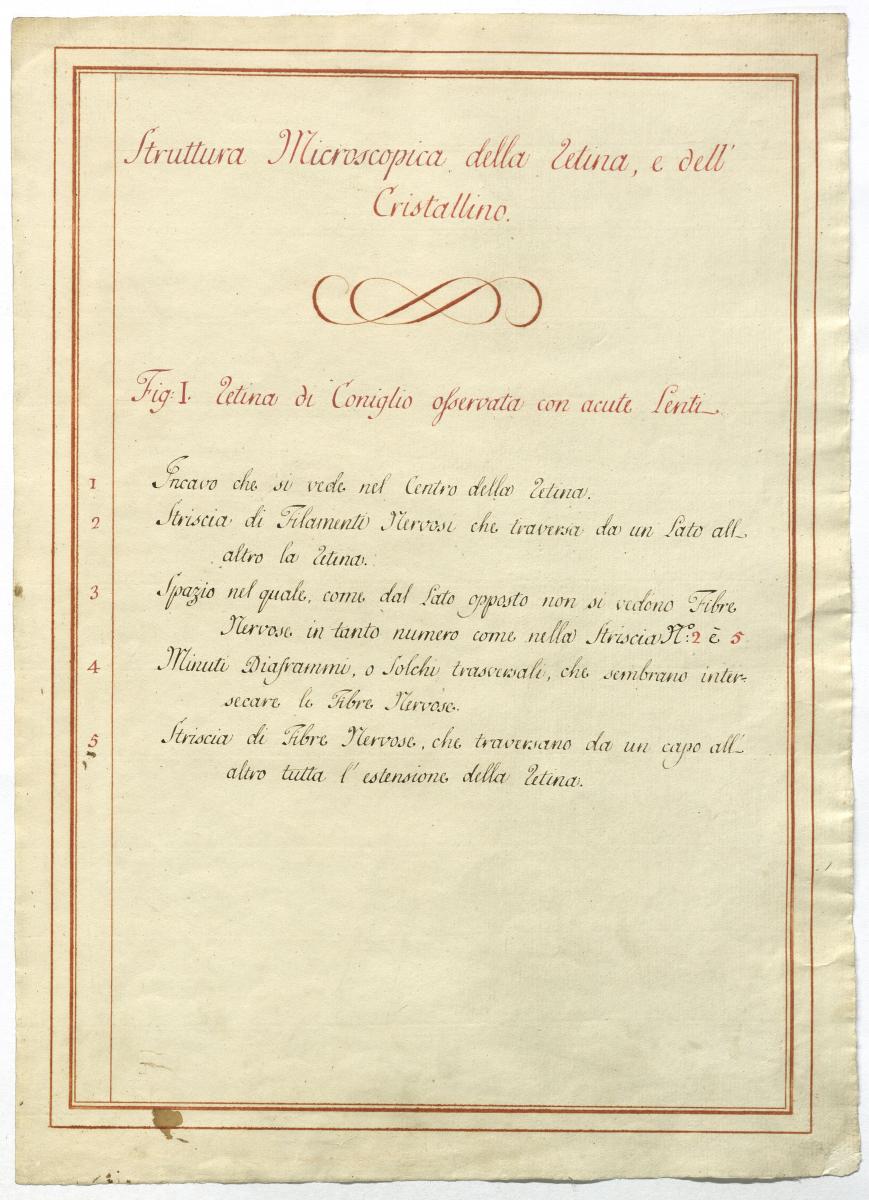 Struttura Microscopica della Retina, e dell'
Cristallino.
Fig: I. Retina di Coniglio osservata con acute Lenti
1 Incavo che si vede nel Centro della Retina.
2 Striscia di Filamenti Nervosi che traversa da un Lato all'
altro la Retina.
3 Spazio nel quale, come dal Lato opposto non si vedono Fibre
Nervose in tanto numero come nella Striscia No: 2 è 5
4 Minuti Diaframmi, o Solchi trasversali, che sembrano inter-
secare le Fibre Nervose.
5 Striscia di Fibre Nervose, che traversano da un capo all'
altro tutta l'estensione della Retina.